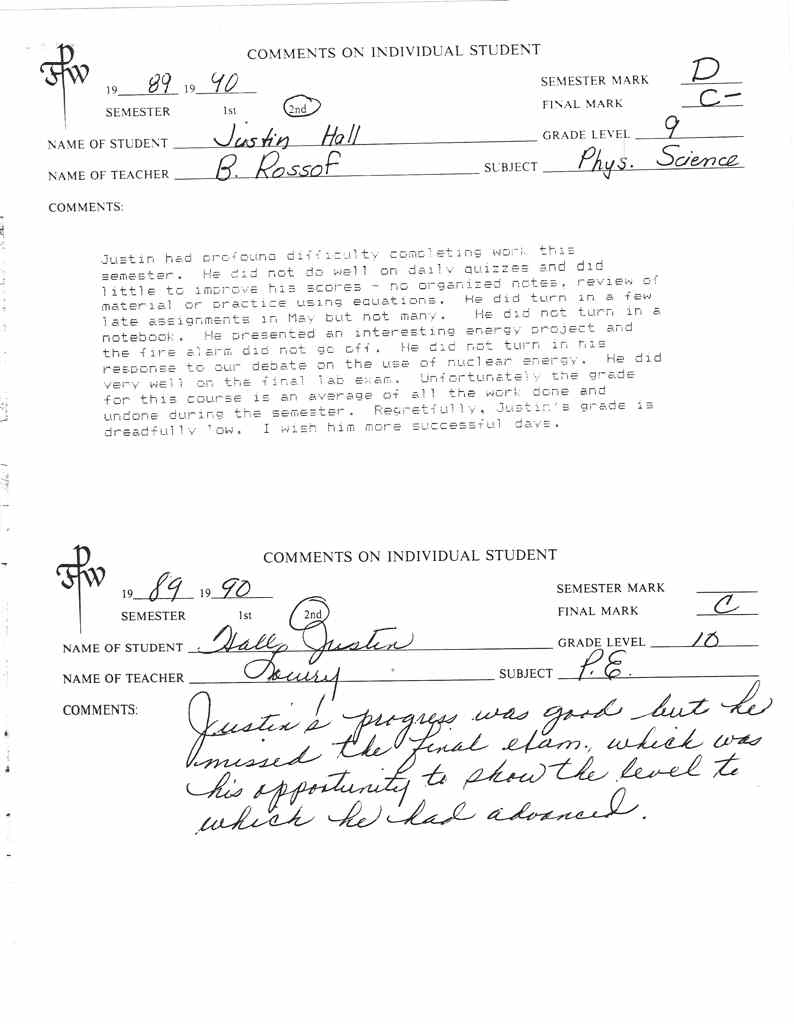 FPW
COMMENTS ON INDIVIDUAL STUDENT
19 89 19 90
SEMESTER 1st 2nd
SEMESTER MARK D
FINAL MARK C-
NAME OF STUDENT Justin Hall
GRADE LEVEL 9
NAME OF TEACHER B. Rossof
SUBJECT Phys. Science
COMMENTS:
Justin had profound difficulty completing work this
semester. He did not do well on daily quizzes and did
little to improve his scores - no organized notes, review of
material or practice using equations. He did turn in a few
late assignments in May but not many. He did not turn in a
notebook. He presented an interesting energy project and
the fire alarm did not go off. He did not turn in his
response to our debate on the use of nuclear energy. He did
very well on the final lab exam. Unfortunately the grade
for this course is an average of all the work done and
undone during the semester. Regretfully, Justin's grade is
dreadfully low. I wish him more successful days.
FPW
COMMENTS ON INDIVIDUAL STUDENT
19 89 19 90
SEMESTER 1st 2nd
SEMESTER MARK
FINAL MARK C
NAME OF STUDENT Hall, Justin
GRADE LEVEL 10
NAME OF TEACHER
SUBJECT P.E.
COMMENTS:
Justin's progress was good but he
missed the final exam, which was
his opportunity to show the level to
which he had advanced.